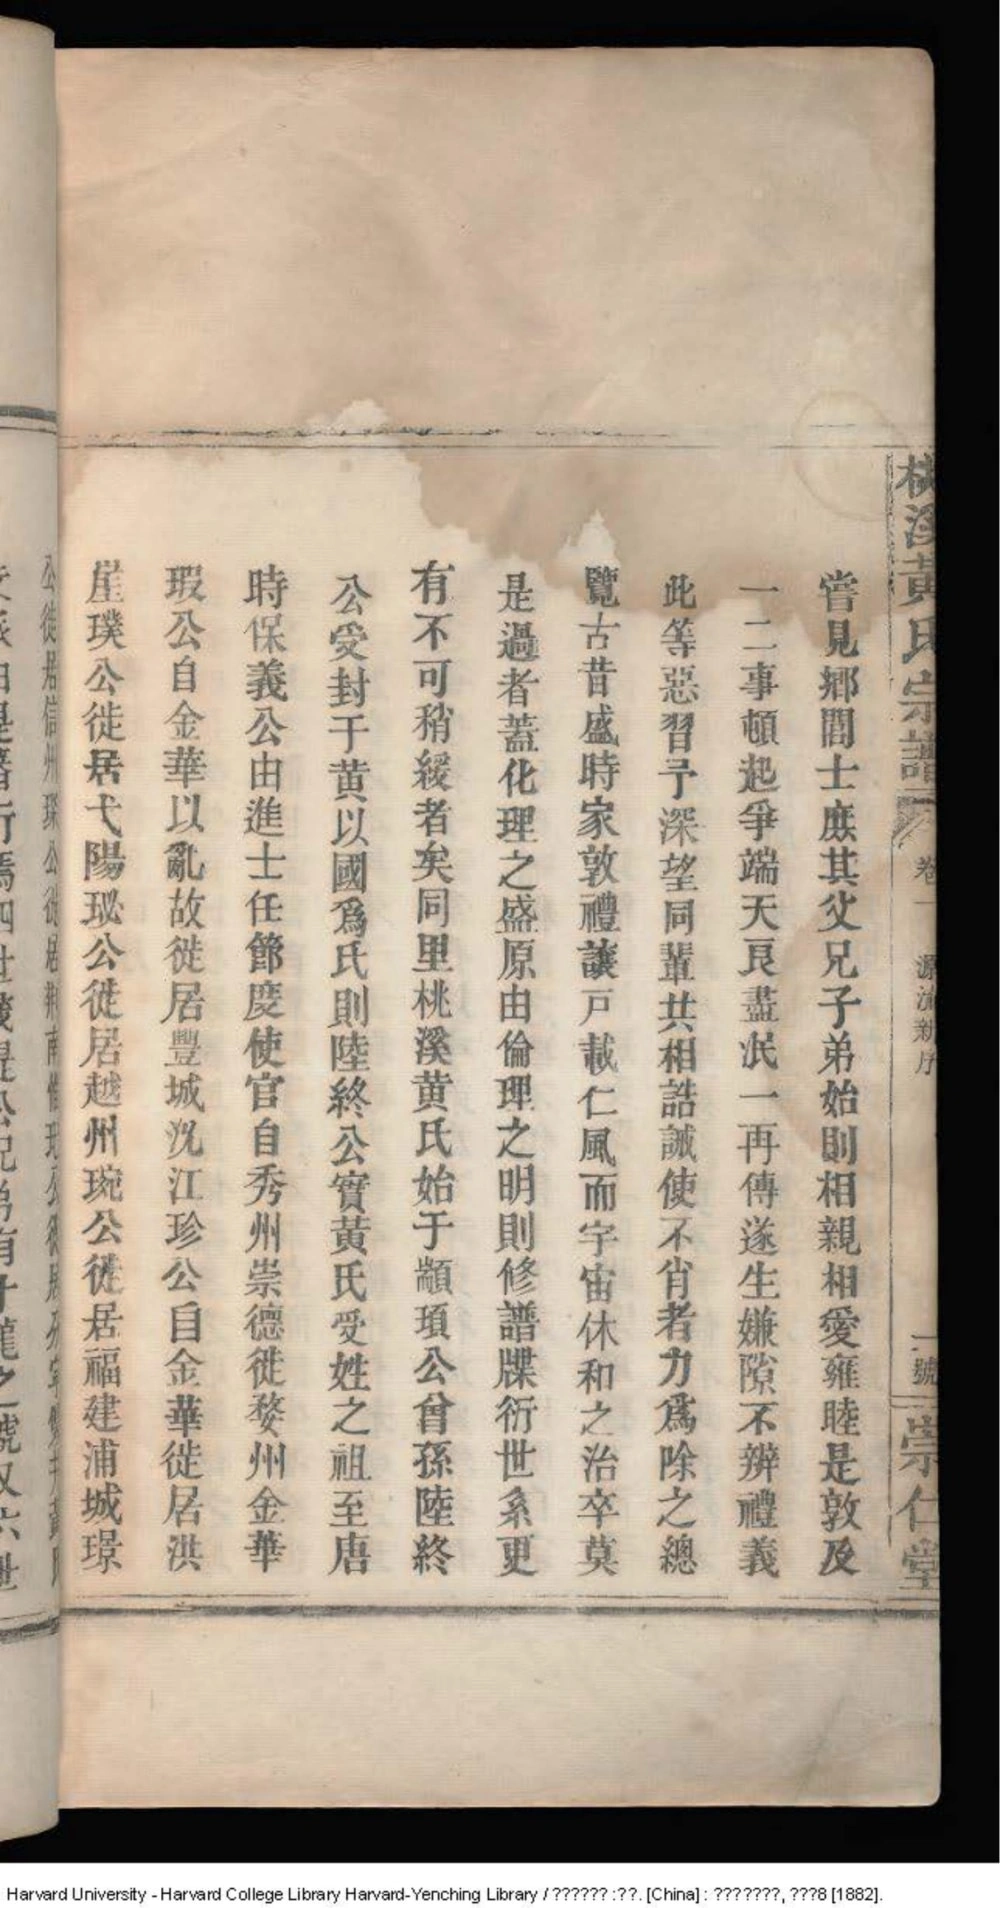 溪黄氏宗譜
卷一
源流新序
一號
崇仁堂
嘗見鄉閭士庶其父兄子弟始則相親相愛雍睦是敦及
一二事頓起爭端天良盡泯一再傳遂生嫌隙不辨禮義
此等惡習予深望同輩共相誥誡使不肖者力爲除之總
覽古昔盛時家敦禮讓戸載仁風而宇宙休和之治卒莫
是過者蓋化理之盛原由倫理之明則修譜牒衍世系更
有不可稍緩者矣同里桃溪黄氏始于顓頊公曾孫陸終
公受封于黄以國爲氏則陸終公實黄氏受姓之祖至唐
時保義公由進士任節度使官自秀州崇德徙婺州金華
瑕公自金華以亂故徙居豐城沇江珍公自金華徙居洪
崖璞公徒居弋陽珌公徙居越州琬公徙居福建浦城璟
公徙居信州琛公徙居荆南
Harvard University - Harvard College Library Harvard-Yenching Library / ?????? :??. [China] : ???????, ???8 [1882].